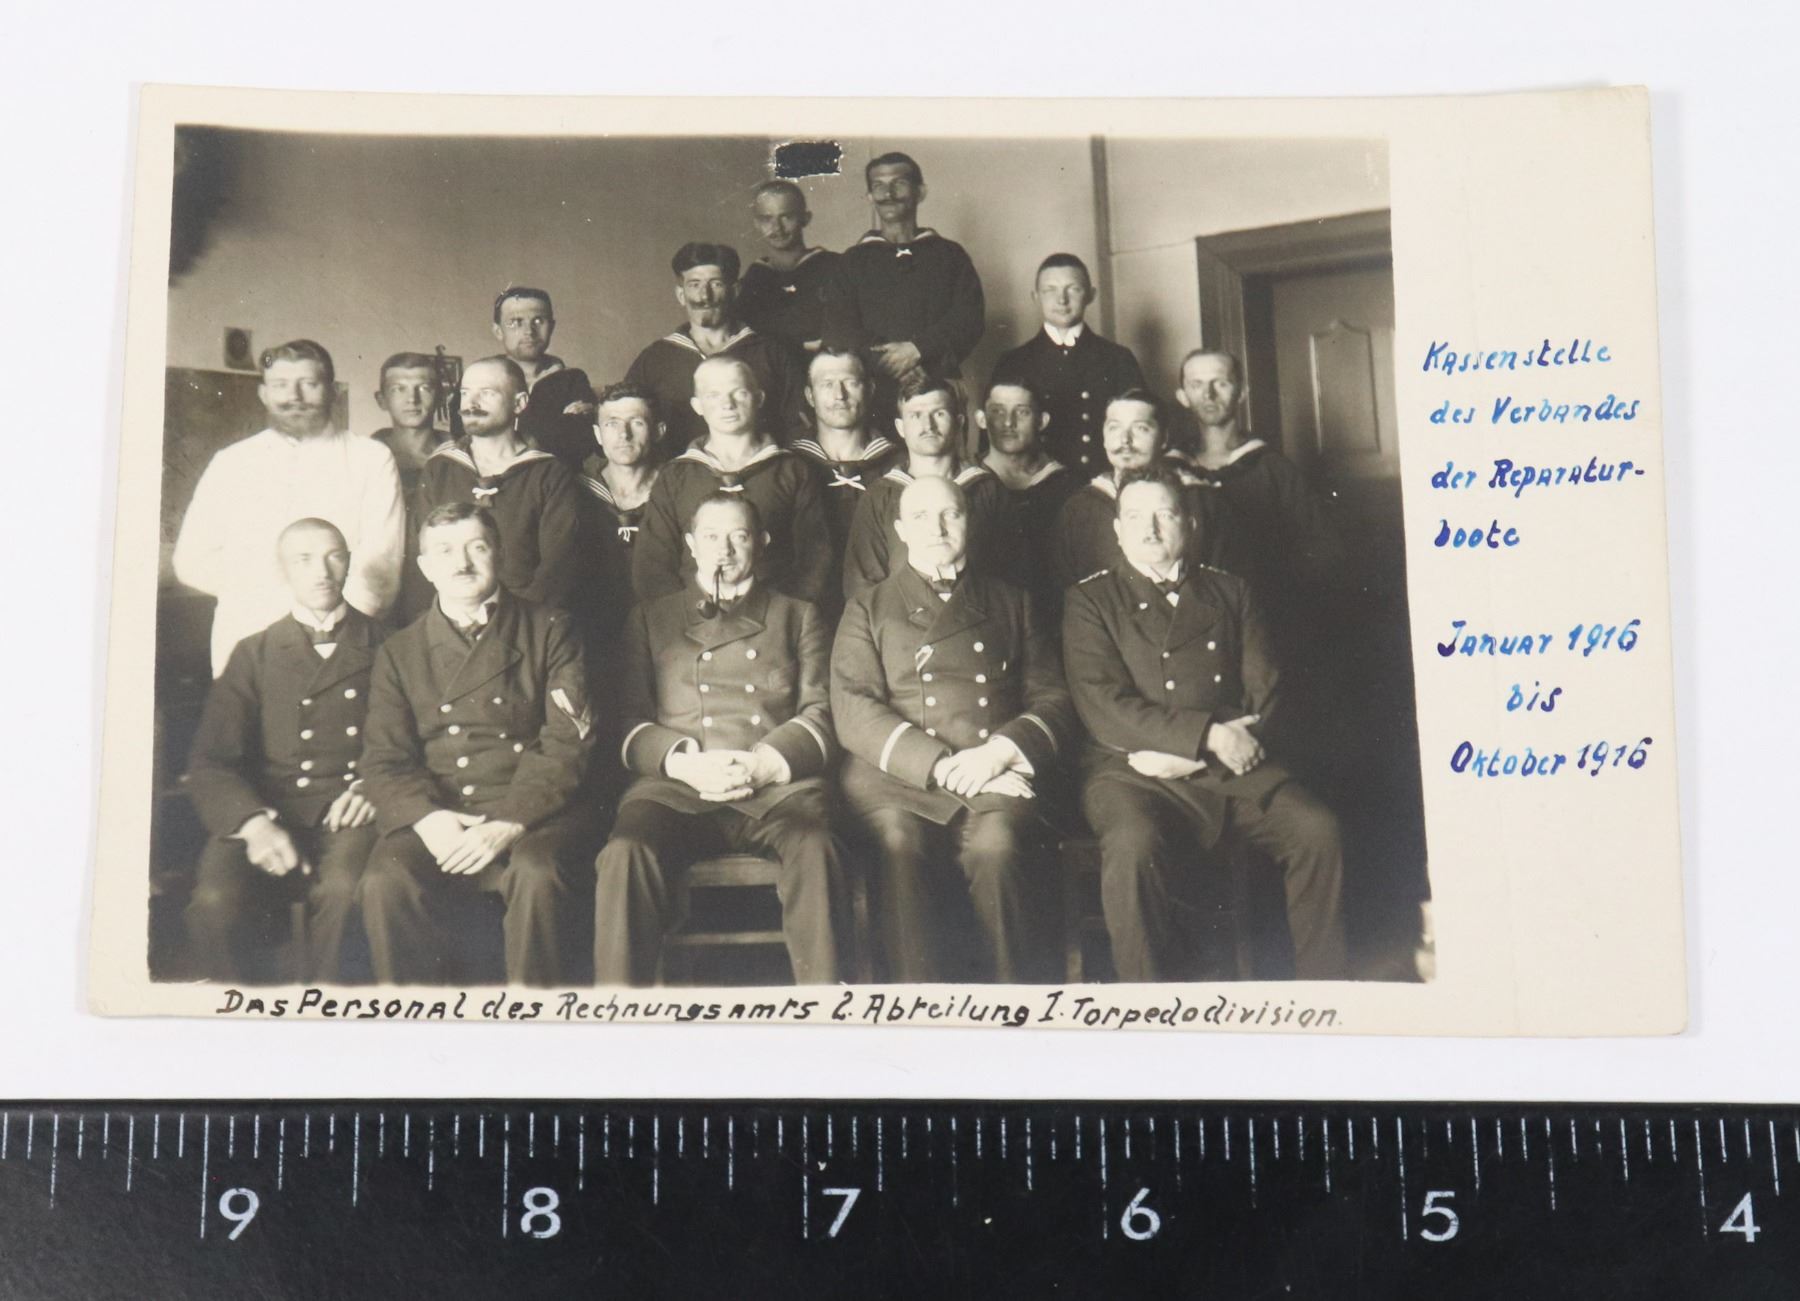 Kassenstelle
des Verbandes
der Reparatur-
boote
Januar 1916
bis
Oktober 1916
Das Personal des Rechnungsamts 2. Abteilung I. Torpedodivision.
9 8 7 6 5 4